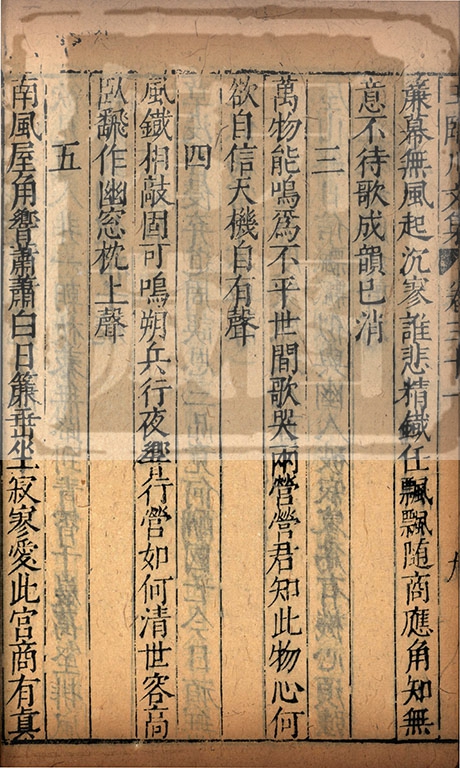 王臨川文集 卷三十一 九
簾幕無風起泬寥誰悲精鐵任飄飄隨商應角知無
意不待歌成韻已消
三
萬物能鳴爲不平世間歌哭兩營營君知此物心何
欲自信天機自有聲
四
風鐵相敲固可鳴朔兵行夜響行營如何清世容高
臥翻作幽窓枕上聲
五
南風屋角響蕭蕭白日簾垂坐寂寥愛此宮商有真